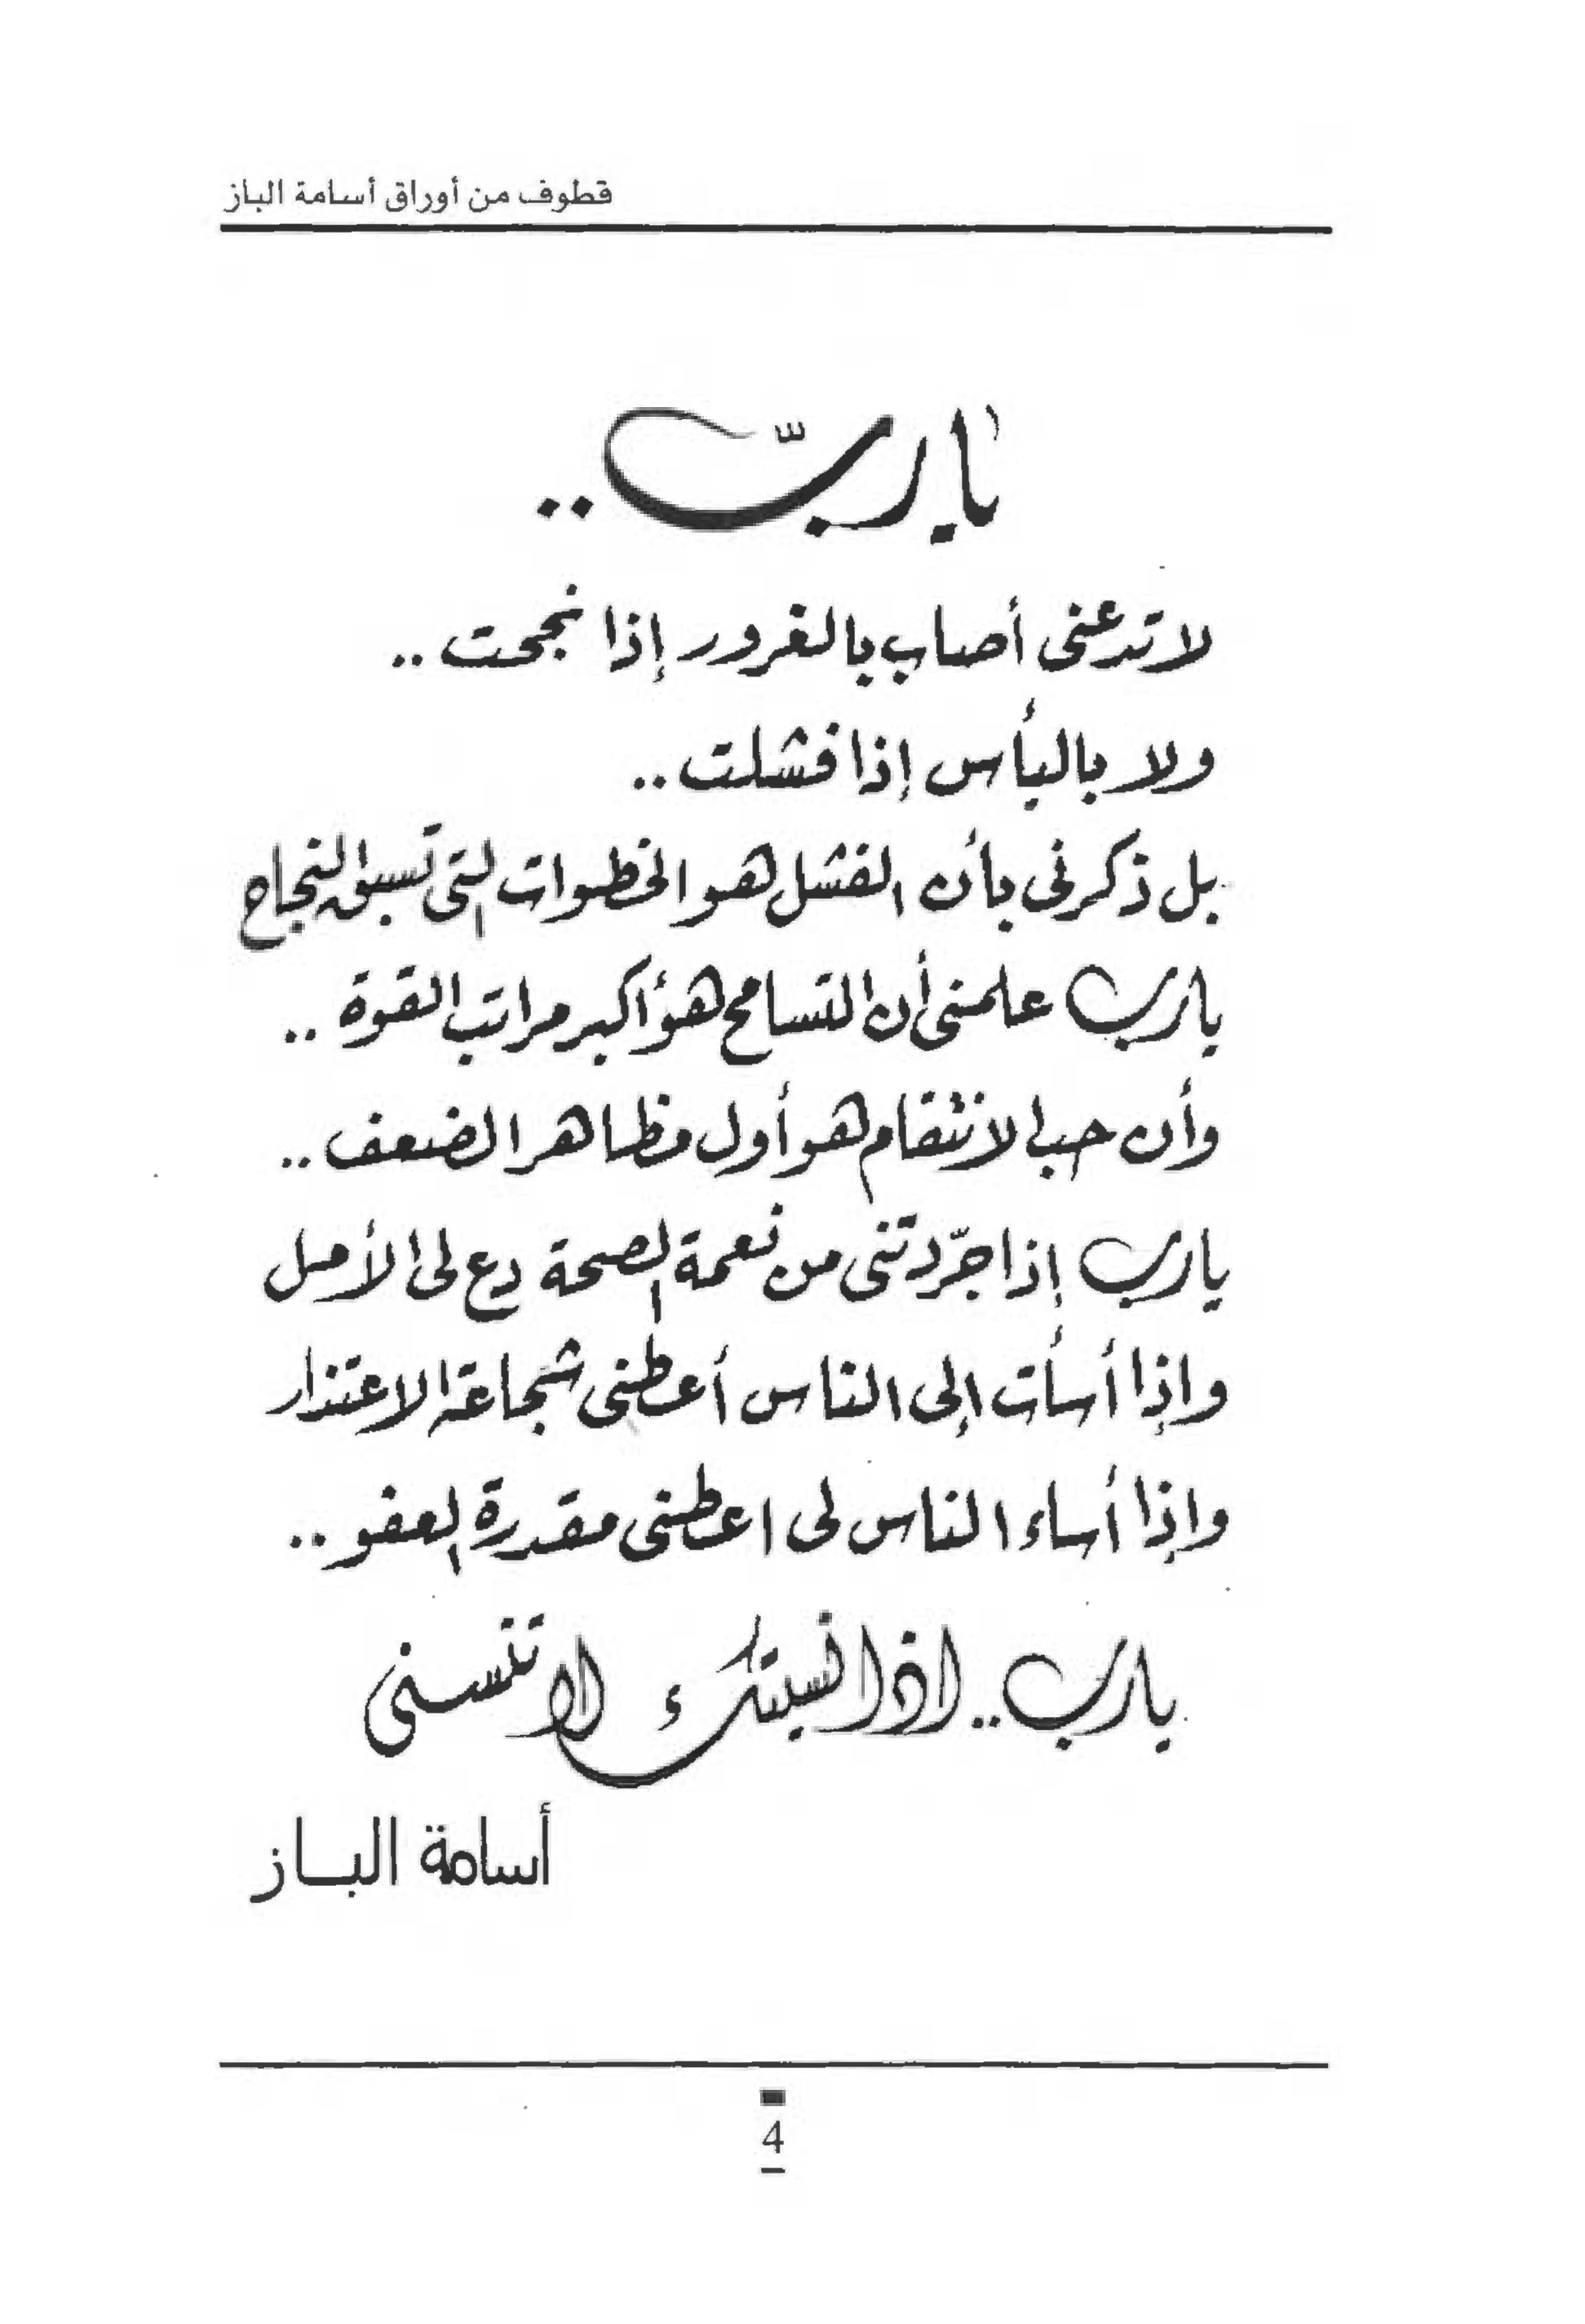 قطوف من أوراق أسامة الباز
يا ربّ ..
لا تدعنى أصاب بالغرور إذا نجحت ..
ولا باليأس إذا فشلت ..
بل ذكرنى بأن الفشل هو الخطوات التى تسبق النجاح
يارب علمنى أن التسامح هو أكبر مراتب القوة ..
وأن حب الانتقام هو أول مظاهر الضعف ..
يارب إذا جرّدتنى من نعمة الصحة دع لى الأمل
وإذا أسأت إلى الناس أعطنى شجاعة الاعتذار
وإذا أساء الناس لى اعطنى مقدرة العفو ..
يارب .. اذا نسيتك لا تنسنى
أسامة الباز
4